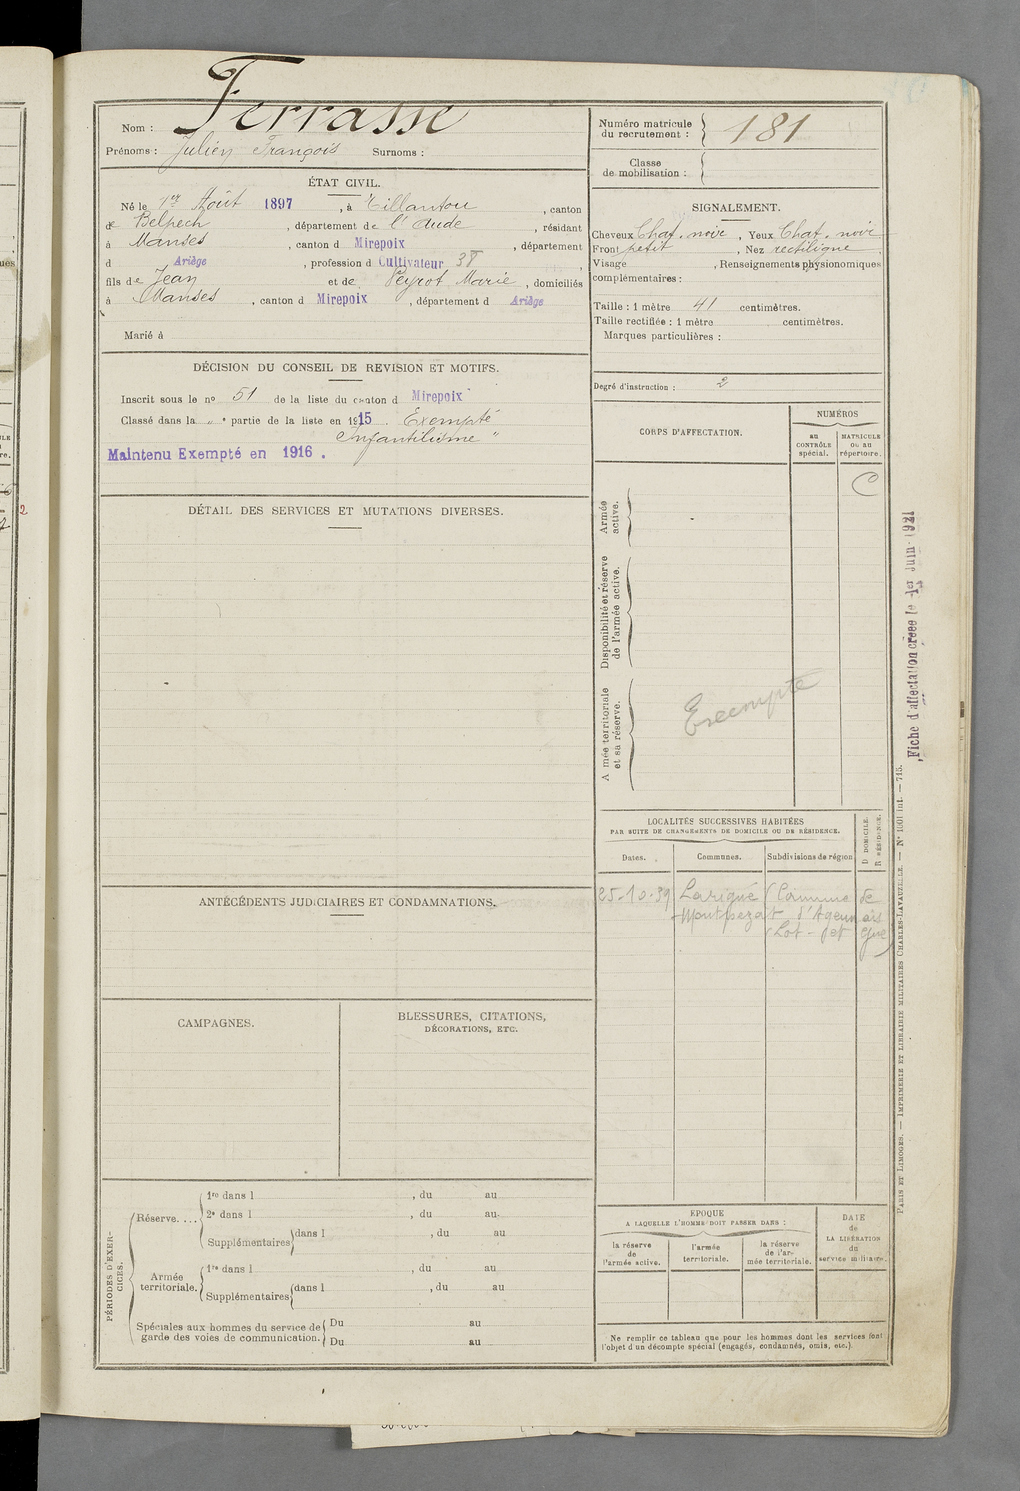 Nom : Ferrasse
Prénoms : Julien François Surnoms :
Numéro matricule
du recrutement : 181
Classe
de mobilisation :
ÉTAT CIVIL.
Né le 1er Août 1897, à Tillantou, canton
de Belpech, département de l'Aude, résidant
à Manses, canton d Mirepoix, département
d Ariège, profession d Cultivateur 38,
fils de Jean et de Peyrot Marie, domiciliés
à Manses, canton d Mirepoix, département d Ariège
Marié à
SIGNALEMENT.
Cheveux Chat. noir, Yeux Chat. noir
Front petit, Nez rectiligne
Visage , Renseignements physionomiques
complémentaires :
Taille : 1 mètre 41 centimètres.
Taille rectifiée : 1 mètre centimètres.
Marques particulières :
Degré d'instruction : 2
DÉCISION DU CONSEIL DE REVISION ET MOTIFS.
Inscrit sous le no 51 de la liste du canton d Mirepoix
Classé dans la " e partie de la liste en 1915. Exempté
Infantilisme "
Maintenu Exempté en 1916.
CORPS D'AFFECTATION.
NUMÉROS
au
CONTRÔLE
spécial.
MATRICULE
ou au
répertoire.
C
Armée
active.
Disponibilité et réserve
de l'armée active.
A mée territoriale
et sa réserve.
Exempté
DÉTAIL DES SERVICES ET MUTATIONS DIVERSES.
Fiche d'affectation créée le 1er Juin 1921
LOCALITÉS SUCCESSIVES HABITÉES
PAR SUITE DE CHANGEMENTS DE DOMICILE OU DE RÉSIDENCE.
Dates.
Communes.
Subdivisions de région
D DOMICILE.
R RÉSIDENCE.
25-10-39 Larigué (Commune de
Montpezat d'Agenais
(Lot-et-Gne)
ANTÉCÉDENTS JUDICIAIRES ET CONDAMNATIONS.
CAMPAGNES.
BLESSURES, CITATIONS,
DÉCORATIONS, ETC.
PÉRIODES D'EXER-
CICES.
Réserve....
1re dans l , du au
2e dans l , du au
Supplémentaires dans l , du au
Armée
territoriale.
1re dans l , du au
Supplémentaires dans l , du au
Spéciales aux hommes du service de
garde des voies de communication.
Du au
Du au
EPOQUE
A LAQUELLE L'HOMME DOIT PASSER DANS :
la réserve
de
l'armée active.
l'armée
territoriale.
la réserve
de l'ar-
mée territoriale.
DATE
de
LA LIBÉRATION
du
service militaire.
Ne remplir ce tableau que pour les hommes dont les services font
l'objet d'un décompte spécial (engagés, condamnés, omis, etc.).
PARIS ET LIMOGES. — IMPRIMERIE ET LIBRAIRIE MILITAIRES CHARLES-LAVAUZELLE. — No 1001 int. — 715.